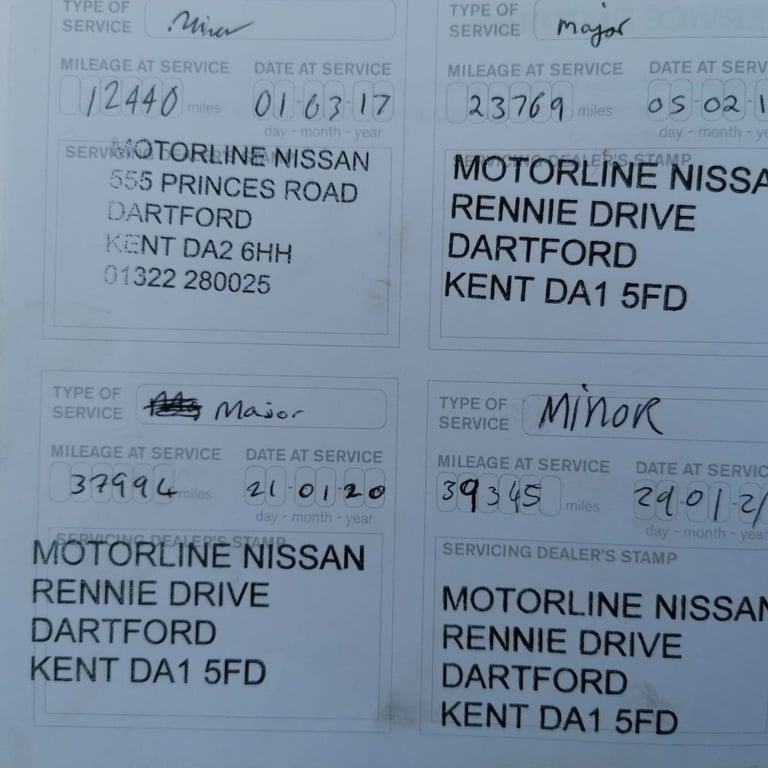 TYPE OF SERVICE Minor
MILEAGE AT SERVICE DATE AT SERVICE
12440 miles 01-03-17
day - month - year
SERVICING DEALER'S STAMP
MOTORLINE NISSAN
555 PRINCES ROAD
DARTFORD
KENT DA2 6HH
01322 280025
TYPE OF SERVICE Major
MILEAGE AT SERVICE DATE AT SERV
23769 miles 05-02-1
day - month - ye
SERVICING DEALER'S STAMP
MOTORLINE NISSA
RENNIE DRIVE
DARTFORD
KENT DA1 5FD
TYPE OF SERVICE Major
MILEAGE AT SERVICE DATE AT SERVICE
37994 miles 21-01-20
day - month - year
SERVICING DEALER'S STAMP
MOTORLINE NISSAN
RENNIE DRIVE
DARTFORD
KENT DA1 5FD
TYPE OF SERVICE MINOR
MILEAGE AT SERVICE DATE AT SERVIC
39345 miles 29-01-2
day - month - year
SERVICING DEALER'S STAMP
MOTORLINE NISSAN
RENNIE DRIVE
DARTFORD
KENT DA1 5FD